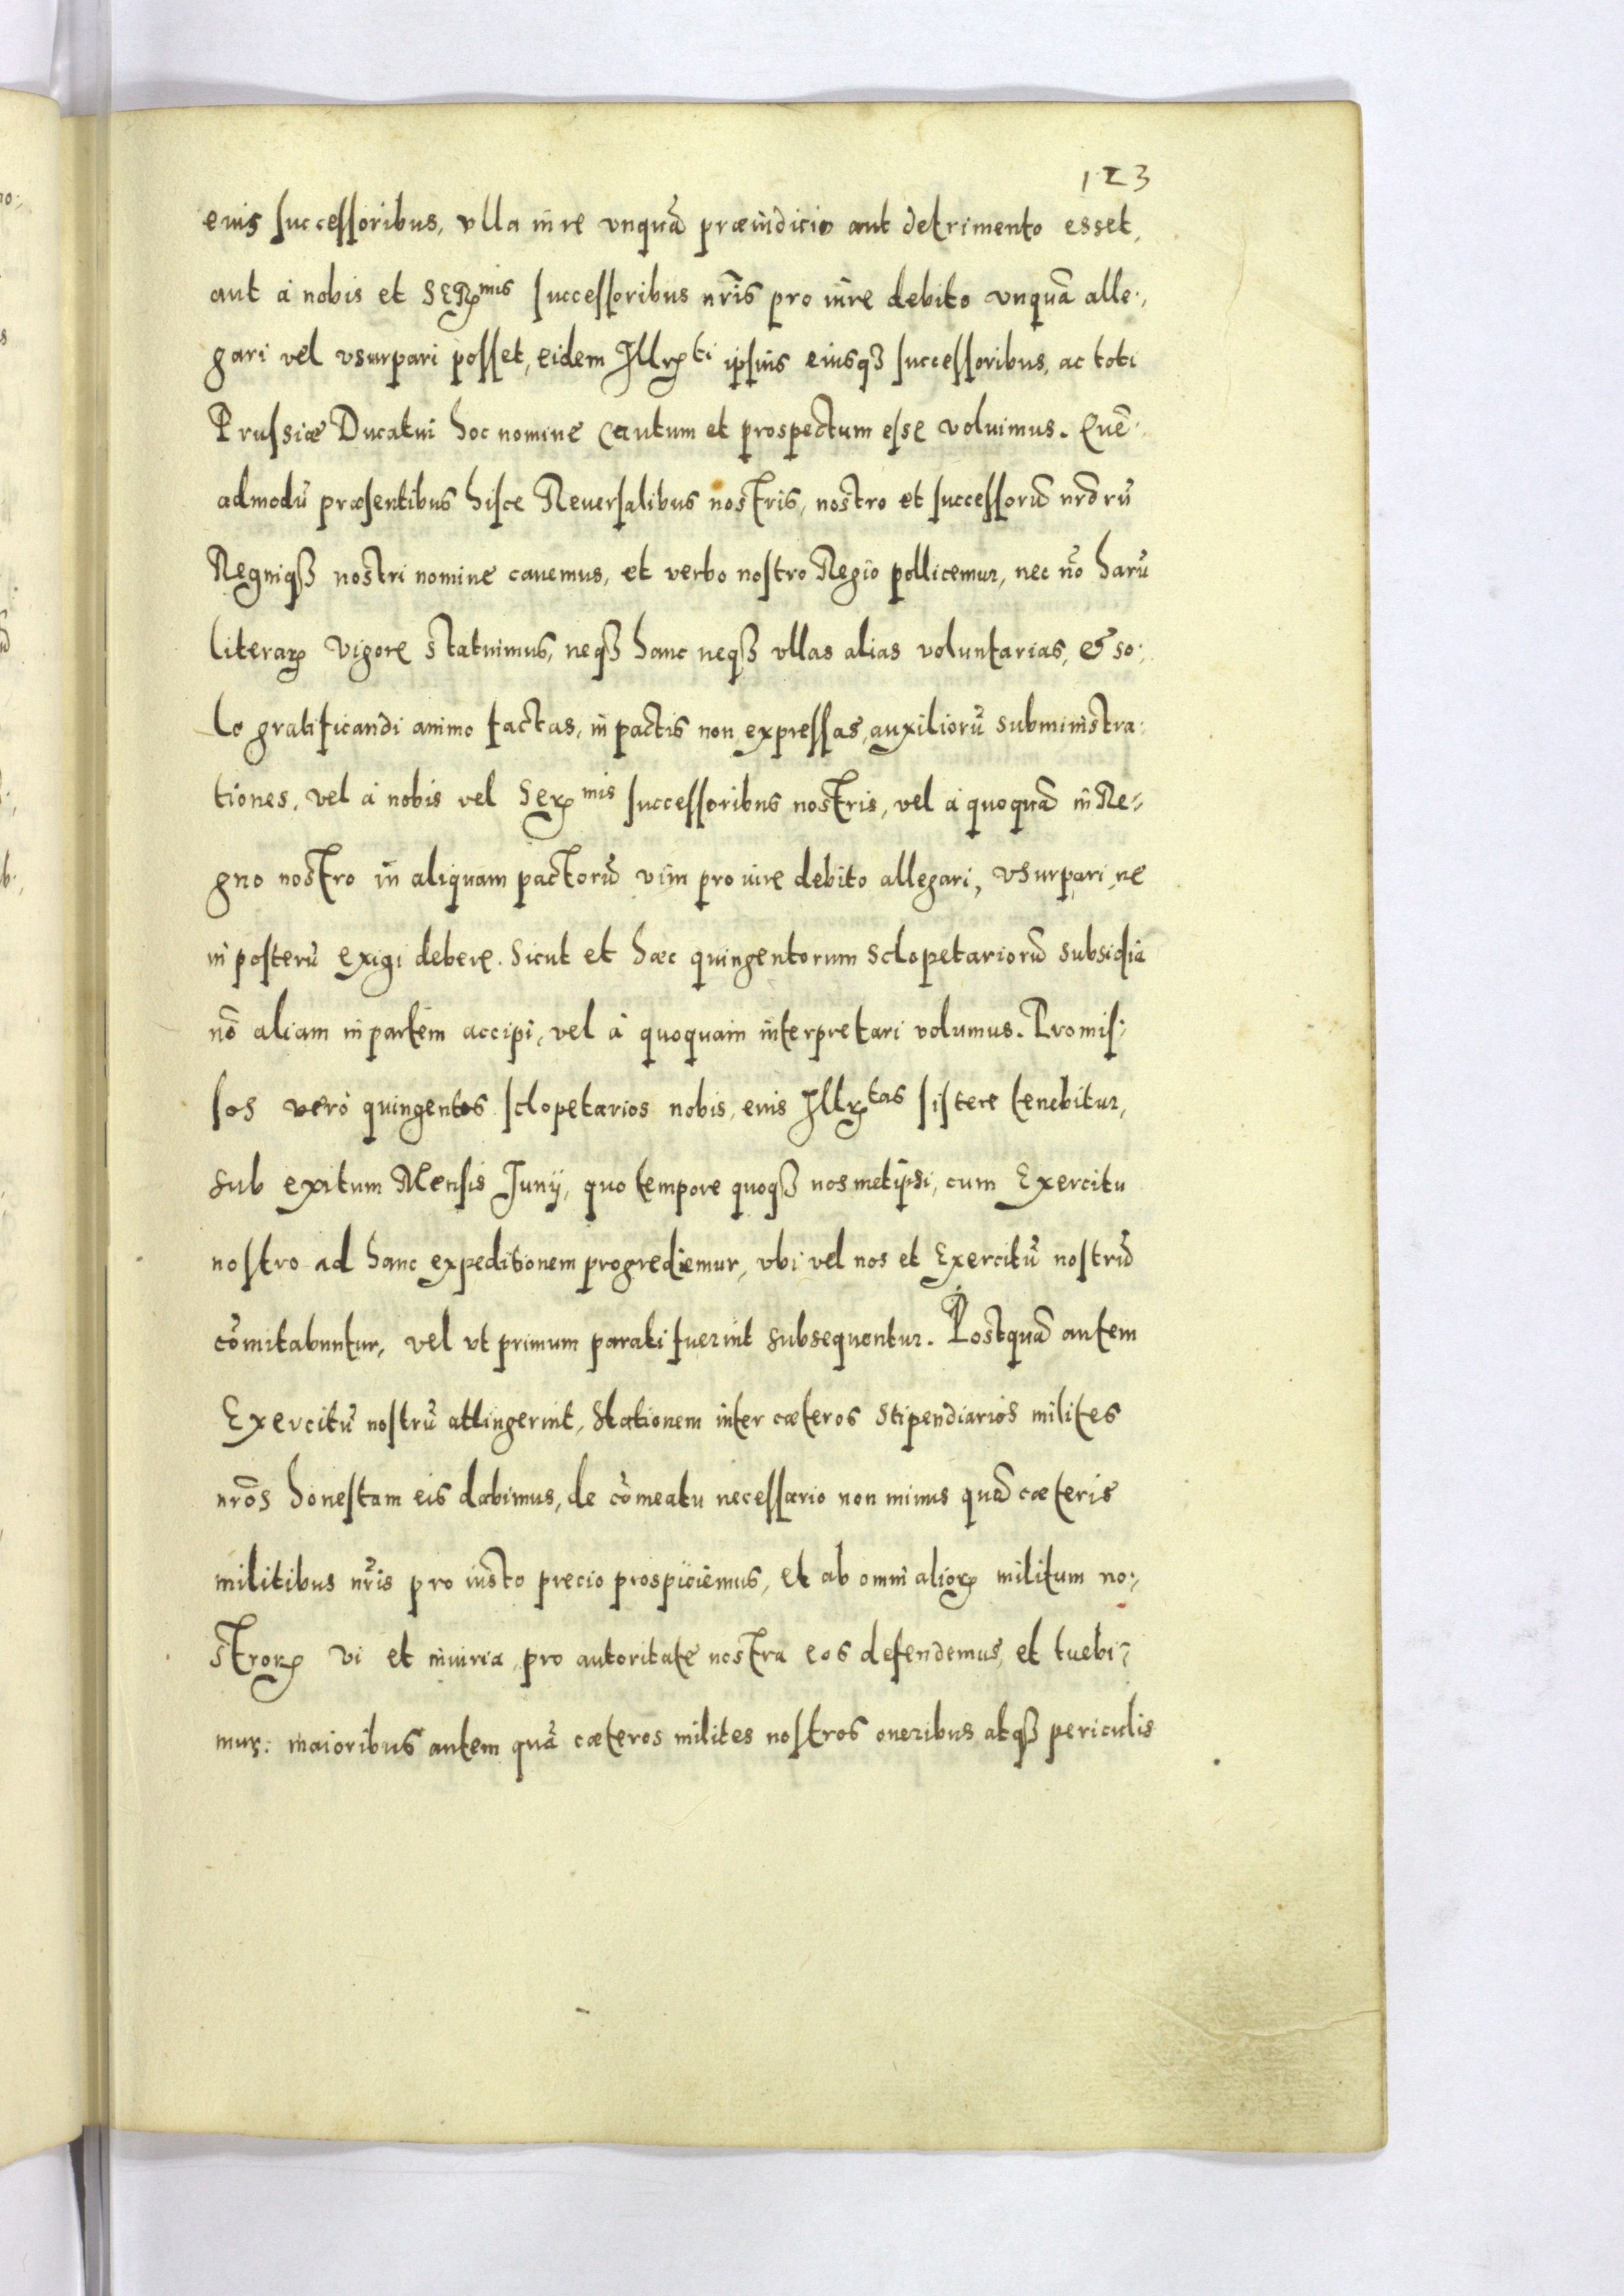 123
eius successoribus, vlla in re vnquā præiudicio aut detrimento esset,
aut à nobis et Serꝫmis successoribus nr̄is pro iure debito vnquā alle-,
gari vel vsurpari posset, eidem Illrꝫti ipsius eiusqꝫ successoribus, ac toti
Prussiæ Ducatui hoc nomine cautum et prospectum esse voluimus. Quē-
admodū præsentibus hisce Reuersalibus nostris, nostro et successorū nr̄orū
Regniqꝫ nostri nomine cauemus, et verbo nostro Regio pollicemur, nec nō harū
literarꝫ vigore statuimus, neqꝫ hanc neqꝫ vllas alias voluntarias, & so-
lo gratificandi animo factas, in pactis non expressas, auxiliorū subministra-
tiones, vel à nobis vel Serꝫmis successoribus nostris, vel à quoquā in Re-
gno nostro in aliquam pactorū vim pro iure debito allegari, vsurpari, ne
in posterū exigi debere. Sicut et hæc quingentorum sclopetariorū subsidia
nō aliam in partem accipi, vel à quoquam interpretari volumus. Promis-
sos verò quingentos sclopetarios nobis, eius Illrꝫtas sistere tenebitur,
sub exitum Mensis Junij, quo tempore quoqꝫ nosmetipsi, cum Exercitu
nostro ad hanc expeditionem progrediemur, vbi vel nos et Exercitū nostrū
cōmitabuntur, vel vt primum parati fuerint subsequentur. Postquā autem
Exercitū nostrū attingerint, Stationem inter cæteros Stipendiarios milites
nr̄os honestam eis dabimus, de cōmeatu necessario non minus quā cæteris
militibus nr̄is pro iusto precio prospiciemus, et ab omni aliorꝫ militum no-,
strorꝫ vi et iniuria, pro autoritate nostra eos defendemus, et tuebi-
mur: maioribus autem quā cæteros milites nostros oneribus atqꝫ periculis